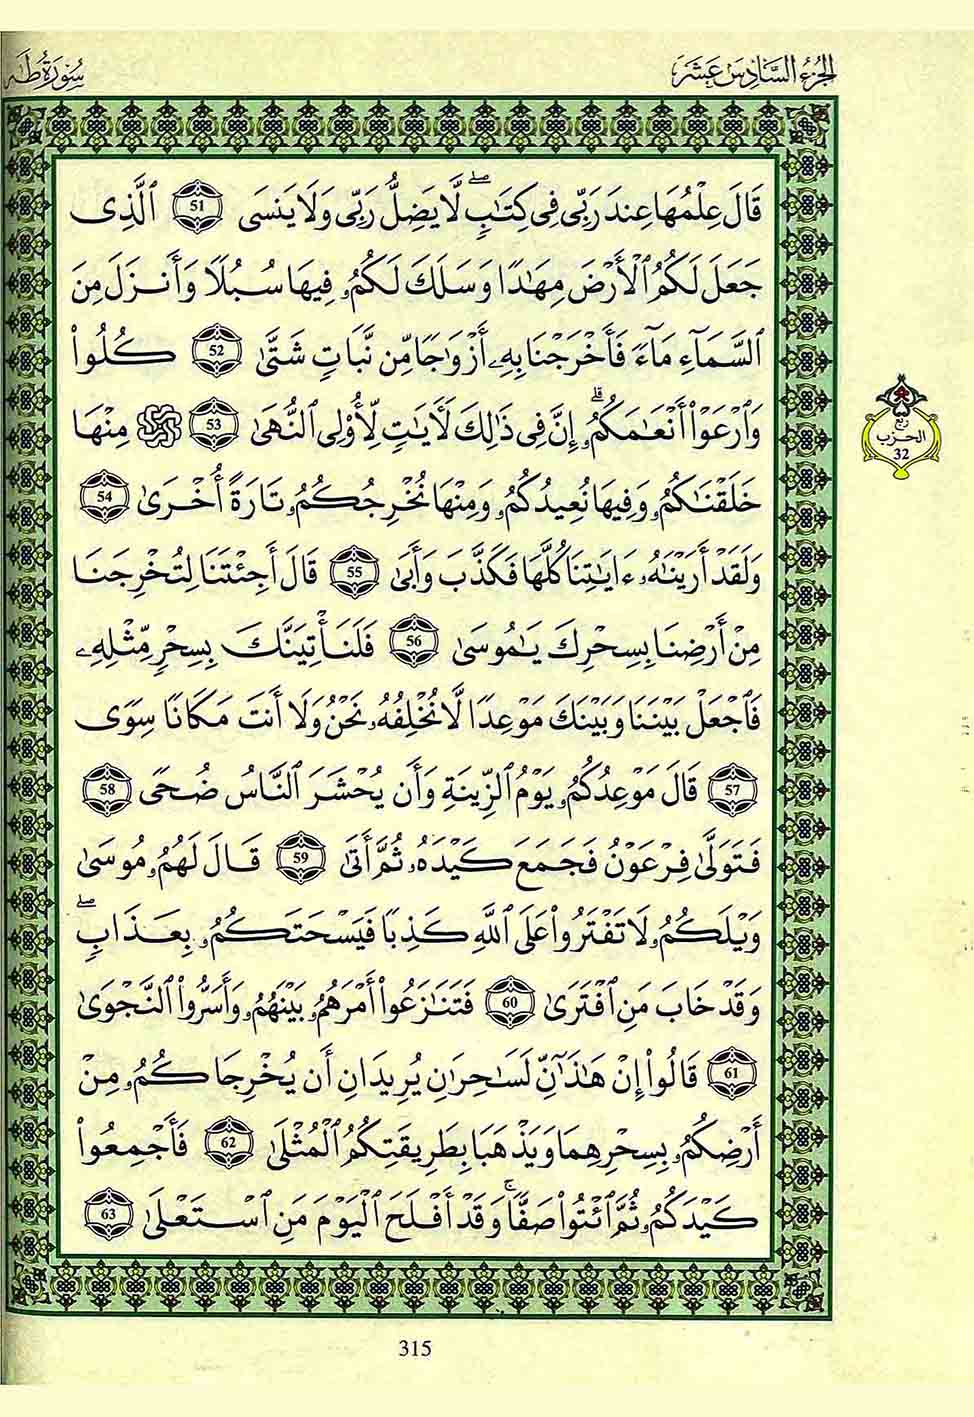 الجزء السادس عشر
سورة طه
قَالَ عِلْمُهَا عِندَ رَبِّى فِى كِتَٰبٍۖ لَّا يَضِلُّ رَبِّى وَلَا يَنسَى 51 ٱلَّذِى
جَعَلَ لَكُمُ ٱلْأَرْضَ مِهَٰدًا وَسَلَكَ لَكُمُۥ فِيهَا سُبُلًا وَأَنزَلَ مِنَ
ٱلسَّمَآءِ مَآءً فَأَخْرَجْنَا بِهِۦ أَزْوَٰجًا مِّن نَّبَاتٍ شَتَّىٰ 52 كُلُوا۟
وَٱرْعَوْا۟ أَنْعَٰمَكُمُۥۗ إِنَّ فِى ذَٰلِكَ لَـَٔايَٰتٍ لِّأُو۟لِى ٱلنُّهَىٰ 53 مِنْهَا
خَلَقْنَٰكُمُۥ وَفِيهَا نُعِيدُكُمُۥ وَمِنْهَا نُخْرِجُكُمُۥ تَارَةً أُخْرَىٰ 54
وَلَقَدْ أَرَيْنَٰهُۥ ءَايَٰتِنَا كُلَّهَا فَكَذَّبَ وَأَبَىٰ 55 قَالَ أَجِئْتَنَا لِتُخْرِجَنَا
مِنْ أَرْضِنَا بِسِحْرِكَ يَٰمُوسَىٰ 56 فَلَنَأْتِيَنَّكَ بِسِحْرٍ مِّثْلِهِۦ
فَٱجْعَلْ بَيْنَنَا وَبَيْنَكَ مَوْعِدًا لَّا نُخْلِفُهُۥ نَحْنُ وَلَا أَنتَ مَكَانًا سِوًى
57 قَالَ مَوْعِدُكُمُۥ يَوْمُ ٱلزِّينَةِ وَأَن يُحْشَرَ ٱلنَّاسُ ضُحًى 58
فَتَوَلَّىٰ فِرْعَوْنُ فَجَمَعَ كَيْدَهُۥ ثُمَّ أَتَىٰ 59 قَالَ لَهُمُۥ مُوسَىٰ
وَيْلَكُمُۥ لَا تَفْتَرُوا۟ عَلَى ٱللَّهِ كَذِبًا فَيَسْحَتَكُمُۥ بِعَذَابٍۖ
وَقَدْ خَابَ مَنِ ٱفْتَرَىٰ 60 فَتَنَٰزَعُوٓا۟ أَمْرَهُمُۥ بَيْنَهُمُۥ وَأَسَرُّوا۟ ٱلنَّجْوَىٰ
61 قَالُوٓا۟ إِنْ هَٰذَآنِّ لَسَٰحِرَٰنِ يُرِيدَانِ أَن يُخْرِجَاكُمُۥ مِنْ
أَرْضِكُمُۥ بِسِحْرِهِمَا وَيَذْهَبَا بِطَرِيقَتِكُمُ ٱلْمُثْلَىٰ 62 فَأَجْمِعُوا۟
كَيْدَكُمُۥ ثُمَّ ٱئْتُوا۟ صَفًّاۚ وَقَدْ أَفْلَحَ ٱلْيَوْمَ مَنِ ٱسْتَعْلَىٰ 63
ربع
الحزب
32
315